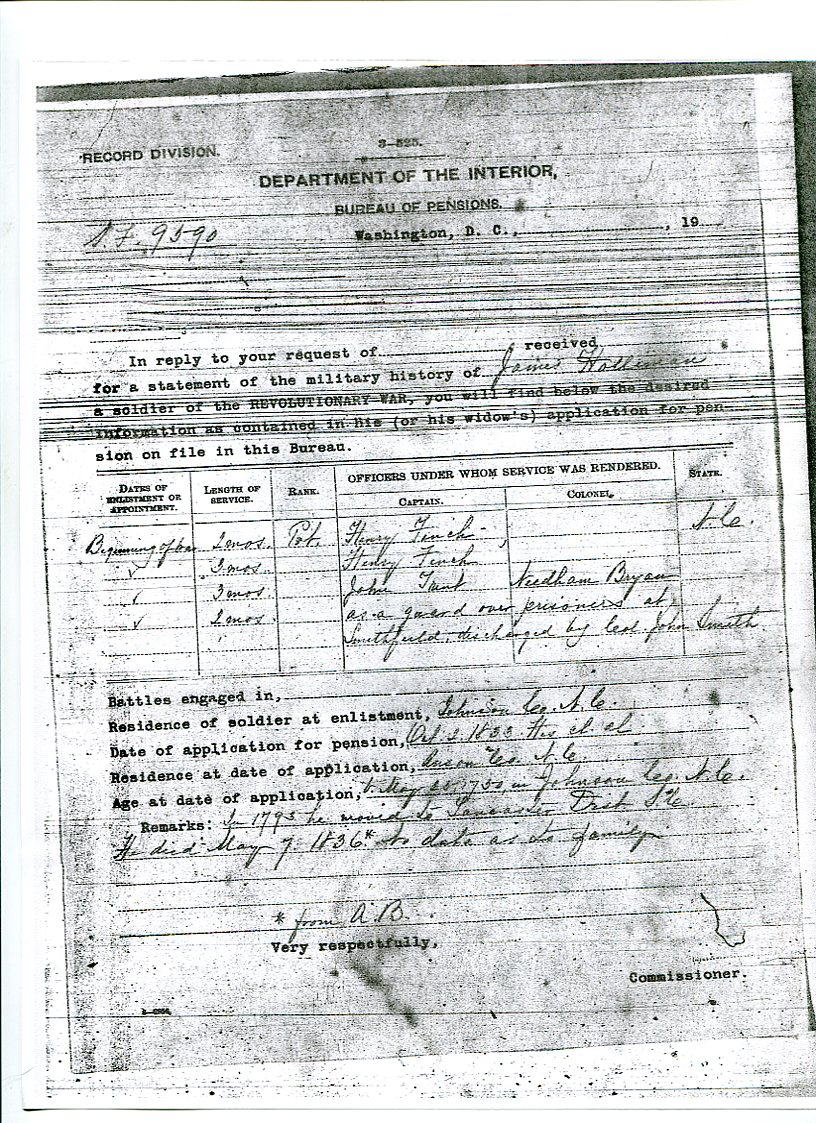 RECORD DIVISION.
3—525.
DEPARTMENT OF THE INTERIOR,
BUREAU OF PENSIONS.
S.F. 9590
Washington, D. C., , 19
In reply to your request of , received
for a statement of the military history of James Holliman
a soldier of the REVOLUTIONARY WAR, you will find below the desired
information as contained in his (or his widow's) application for pen-
sion on file in this Bureau.
DATES OF ENLISTMENT OR APPOINTMENT.
LENGTH OF SERVICE.
RANK.
OFFICERS UNDER WHOM SERVICE WAS RENDERED.
CAPTAIN.
COLONEL.
STATE.
Beginning of war 2 mos. Pvt. Henry Finch N.C.
✓ 3 mos. Henry Finch
✓ 3 mos. John Needham Bryan
✓ 2 mos. as a guard over prisoners at
Smithfield, discharged by Col. John Smith
Battles engaged in,
Residence of soldier at enlistment, Johnson Co. N.C.
Date of application for pension, Oct. 2, 1833. His cl. al
Residence at date of application, Anson Co. N.C.
Age at date of application, b. May in Johnson Co. N.C.
Remarks: In 1795 he moved to Lancaster Dist. S.C.
He died May 7, 1836* No data as to family
* from A.B.
Very respectfully,
Commissioner.